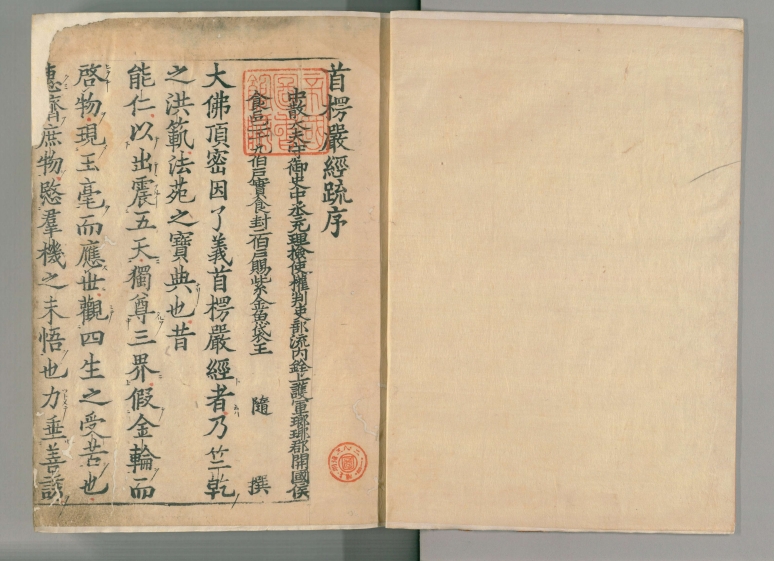 首楞嚴經疏序
中散大夫守御史中丞充理檢使權判吏部流内銓上護軍瑯琊郡開國侯
食邑一千八伯戶實食封二伯戶賜紫金魚袋王 隨 撰
大佛頂密因了義首楞嚴經者乃竺乾
之洪範法苑之寶典也昔
能仁以出震五天獨尊三界假金輪而
啓物現玉毫而應世觀四生之受苦也
惠濟庶物愍羣機之未悟也力垂善誘